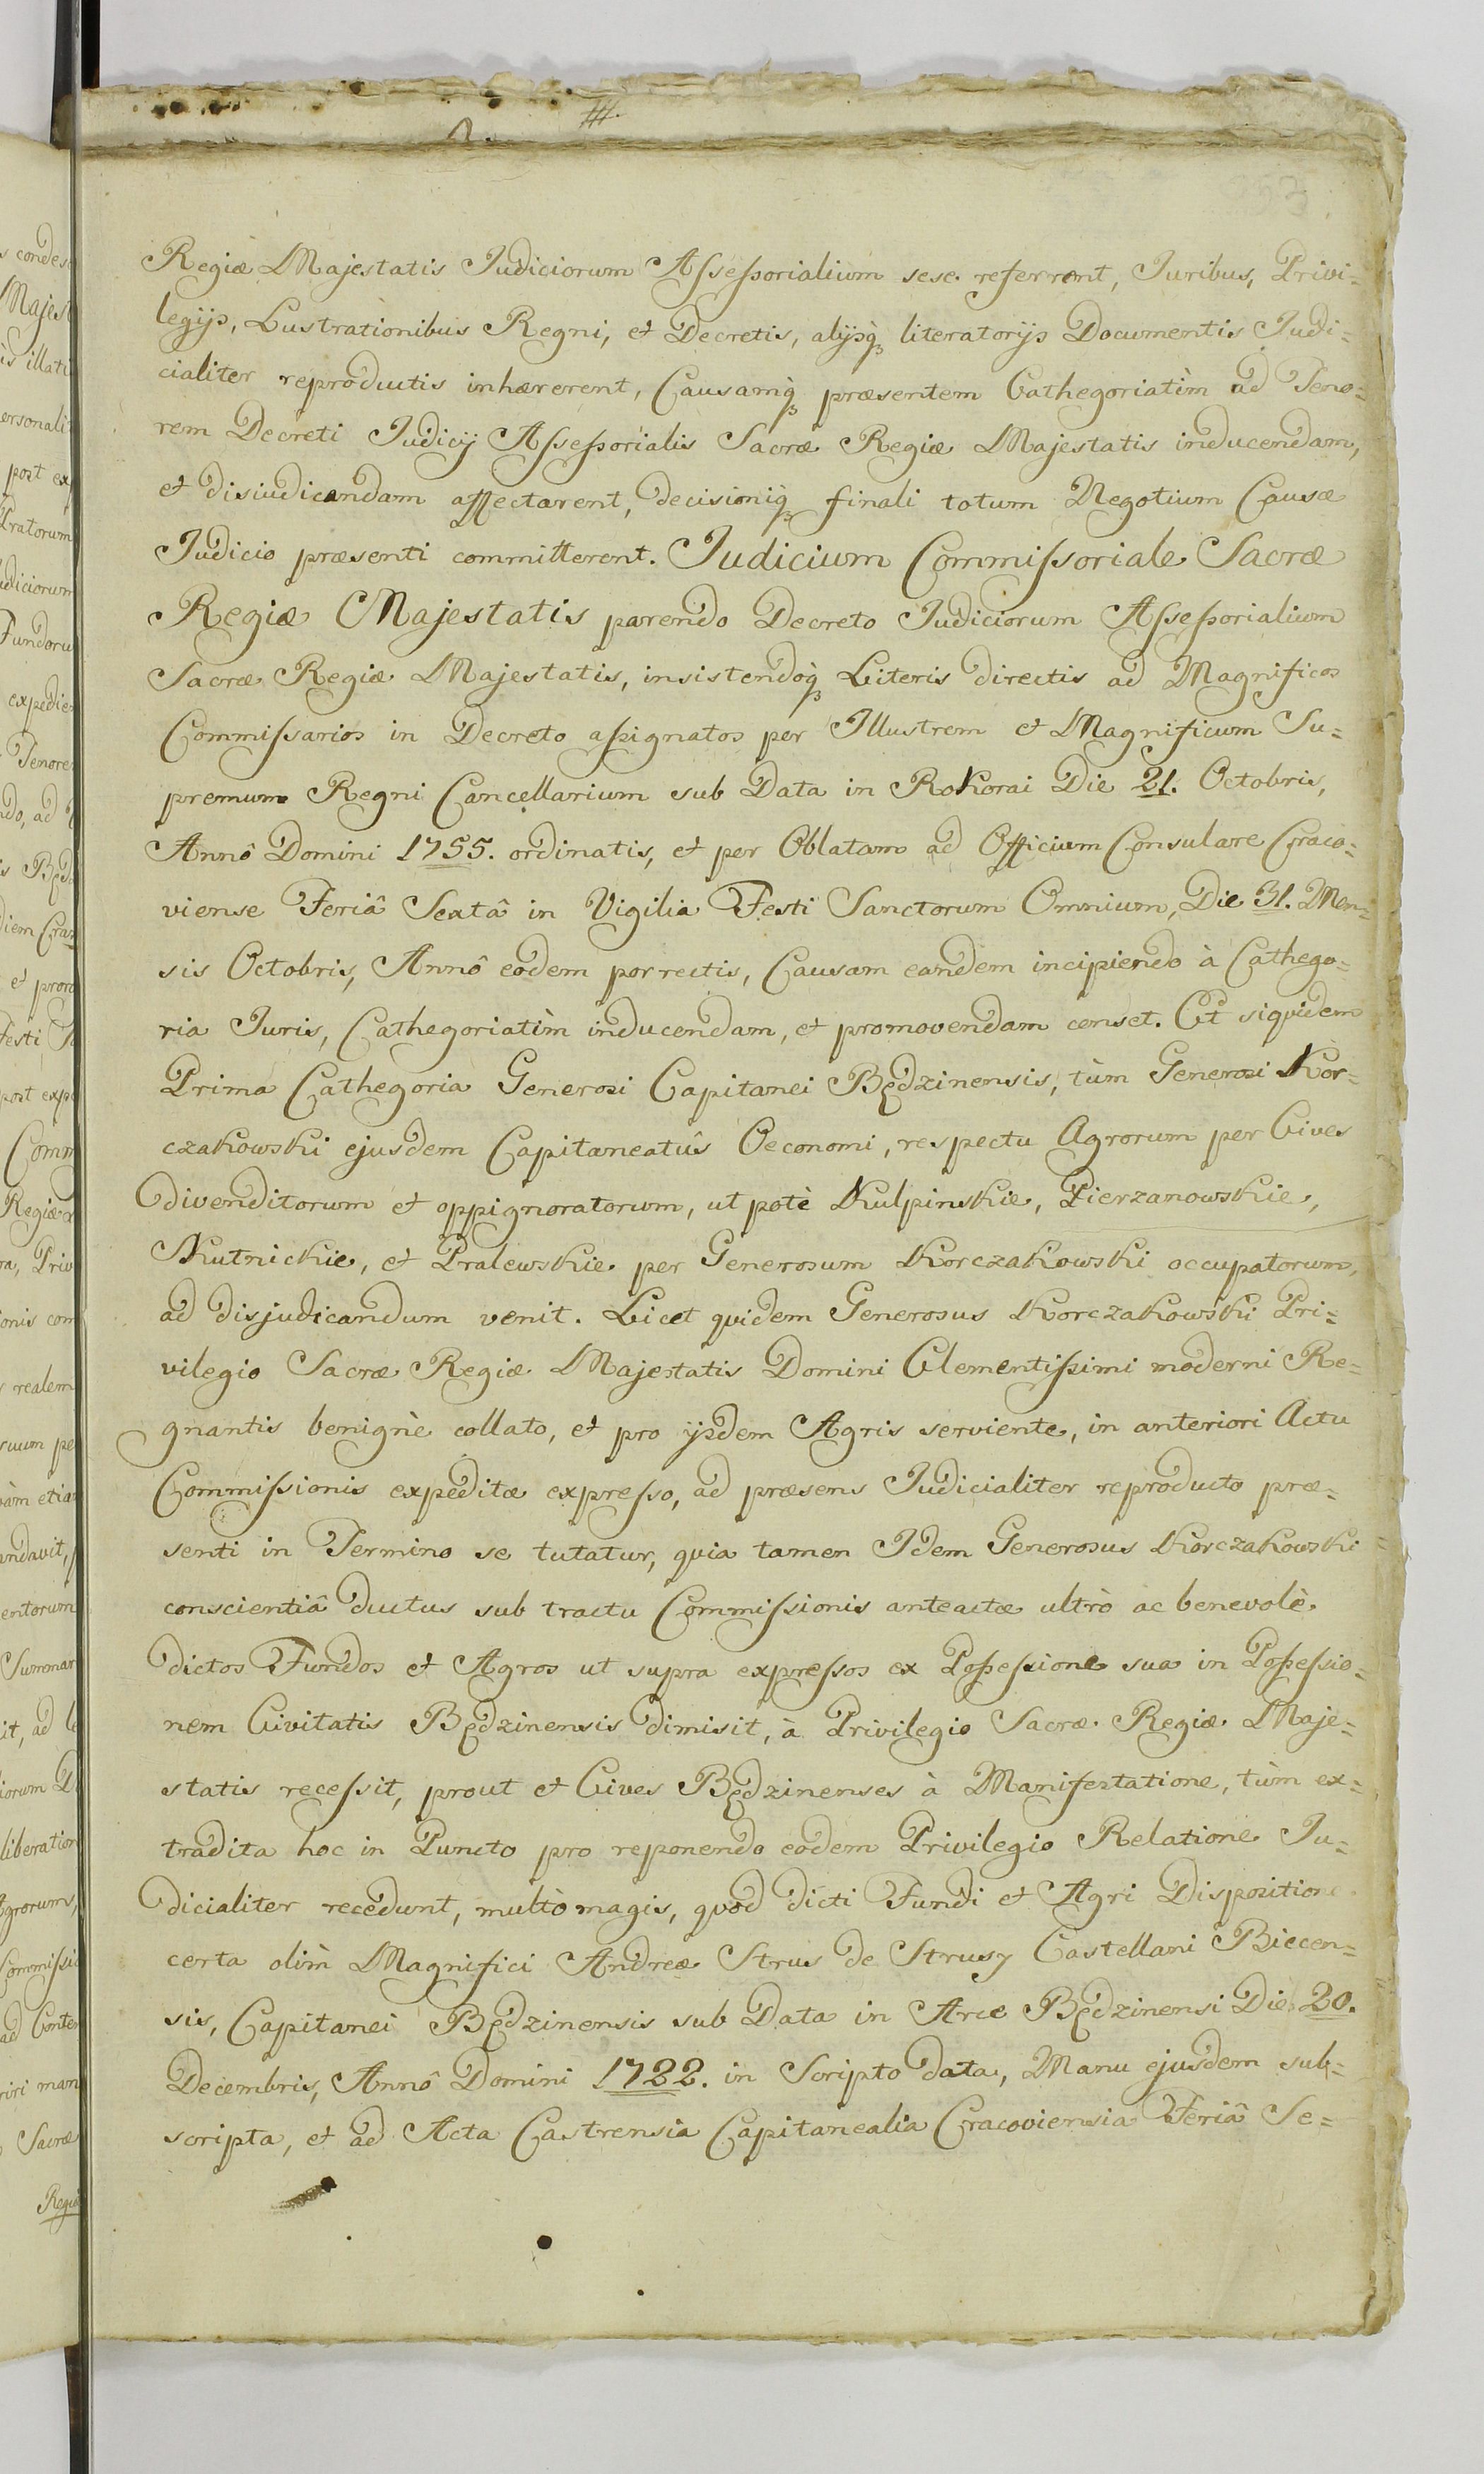 Regiæ Majestatis Judiciorum Assessorialium sese referrent, Juribus, Privi=
legijs, Lustrationibus Regni, et Decretis, alijsq̀ꝫ literatorijs Documentis Judi=
cialiter reproductis inhærerent, Causamq̀ꝫ præsentem Cathegoriatìm ad Teno=
rem Decreti Judicij Assessorialis Sacræ Regiæ Majestatis inducendam,
et disiudicandam affectarent, decisioniq̀ꝫ finali totum Negotium Causæ
Judicio præsenti committerent. Judicium Commissoriale Sacræ
Regiæ Majestatis parendo Decreto Judiciorum Assessorialium
Sacræ Regiæ Majestatis, insistendoq̀ꝫ Literis directis ad Magnificos
Commissarios in Decreto assignatos per Illustrem et Magnificum Su=
premum Regni Cancellarium sub Data in Rokorai Die 21. Octobris,
Annô Domini 1755. ordinatis, et per Oblatam ad Officium Consulare Craco=
viense Feriâ Sextâ in Vigilia Festi Sanctorum Omnium, Die 31. Men=
sis Octobris, Annô eodem porrectis, Causam eandem incipiendo à Cathego=
ria Juris, Cathegoriatìm inducendam, et promovendam censet. Et siquidem
Prima Cathegoria Generosi Capitanei Będzinensis, tùm Generosi Kor=
czakowski ejusdem Capitaneatûs Oeconomi, respectu Agrorum per Cives
divenditorum et oppignoratorum, ut potè Kulpinskie, Pierzanowskie,
Kutnickie, et Pralewskie per Generosum Korczakowski occupatorum,
ad disjudicandum venit. Licet quidem Generosus Korczakowski Pri=
vilegio Sacræ Regiæ Majestatis Domini Clementissimi moderni Re=
gnantis benignè collato, et pro ijsdem Agris serviente, in anteriori Actu
Commissionis expeditæ expresso, ad præsens Judicialiter reproducto præ=
senti in Termino se tutatur, quia tamen Idem Generosus Korczakowski
conscientiâ ductus sub tractu Commissionis anteactæ ultrò ac benevolè
dictos Fundos et Agros ut supra expressos ex Possessione sua in Possessio=
nem Civitatis Będzinensis dimisit, à Privilegio Sacræ Regiæ Maje=
statis recessit, prout et Cives Będzinenses à Manifestatione, tùm ex=
tradita hoc in Puncto pro reponendo eodem Privilegio Relatione Ju=
dicialiter recedunt, multò magis, quod dicti Fundi et Agri Dispositione
certa olim Magnifici Andreæ Strus de Strusy Castellani Biecen=
sis, Capitanei Będzinensis sub Data in Arce Będzinensi Die 20.
Decembris, Annô Domini 1722. in Scripto data, Manu ejusdem sub=
scripta, et ad Acta Castrensia Capitanealia Cracoviensia Feriâ Se=